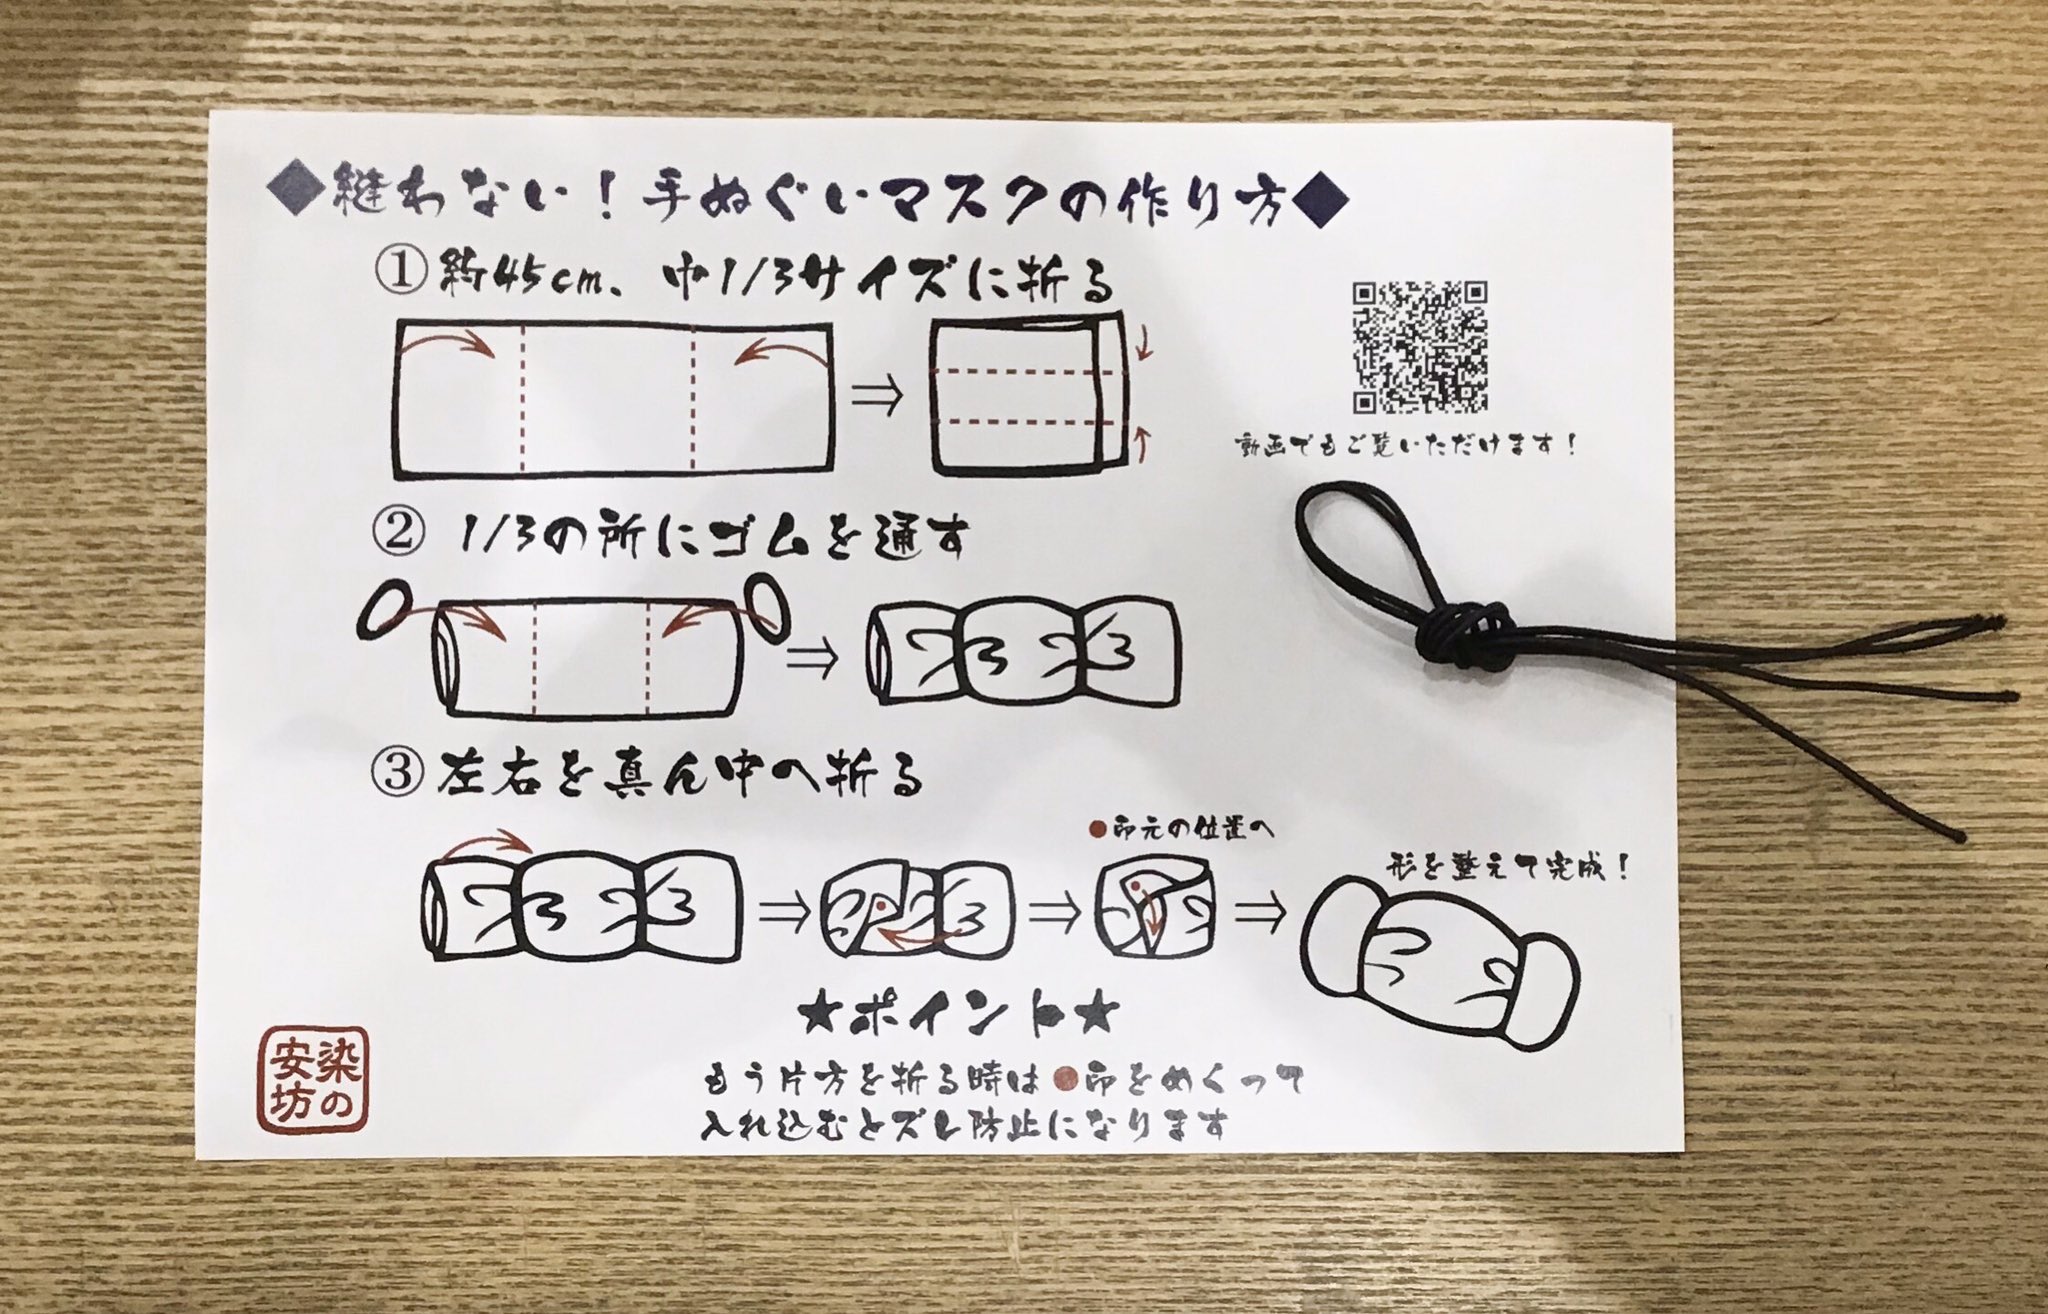 ◆縫わない！手ぬぐいマスクの作り方◆
①約45cm、巾1/3サイズに折る
動画でもご覧いただけます！
②1/3の所にゴムを通す
③左右を真ん中へ折る
●印元の位置へ
形を整えて完成！
★ポイント★
もう片方を折る時は●印をめくって
入れ込むとズレ防止になります
染の
安坊